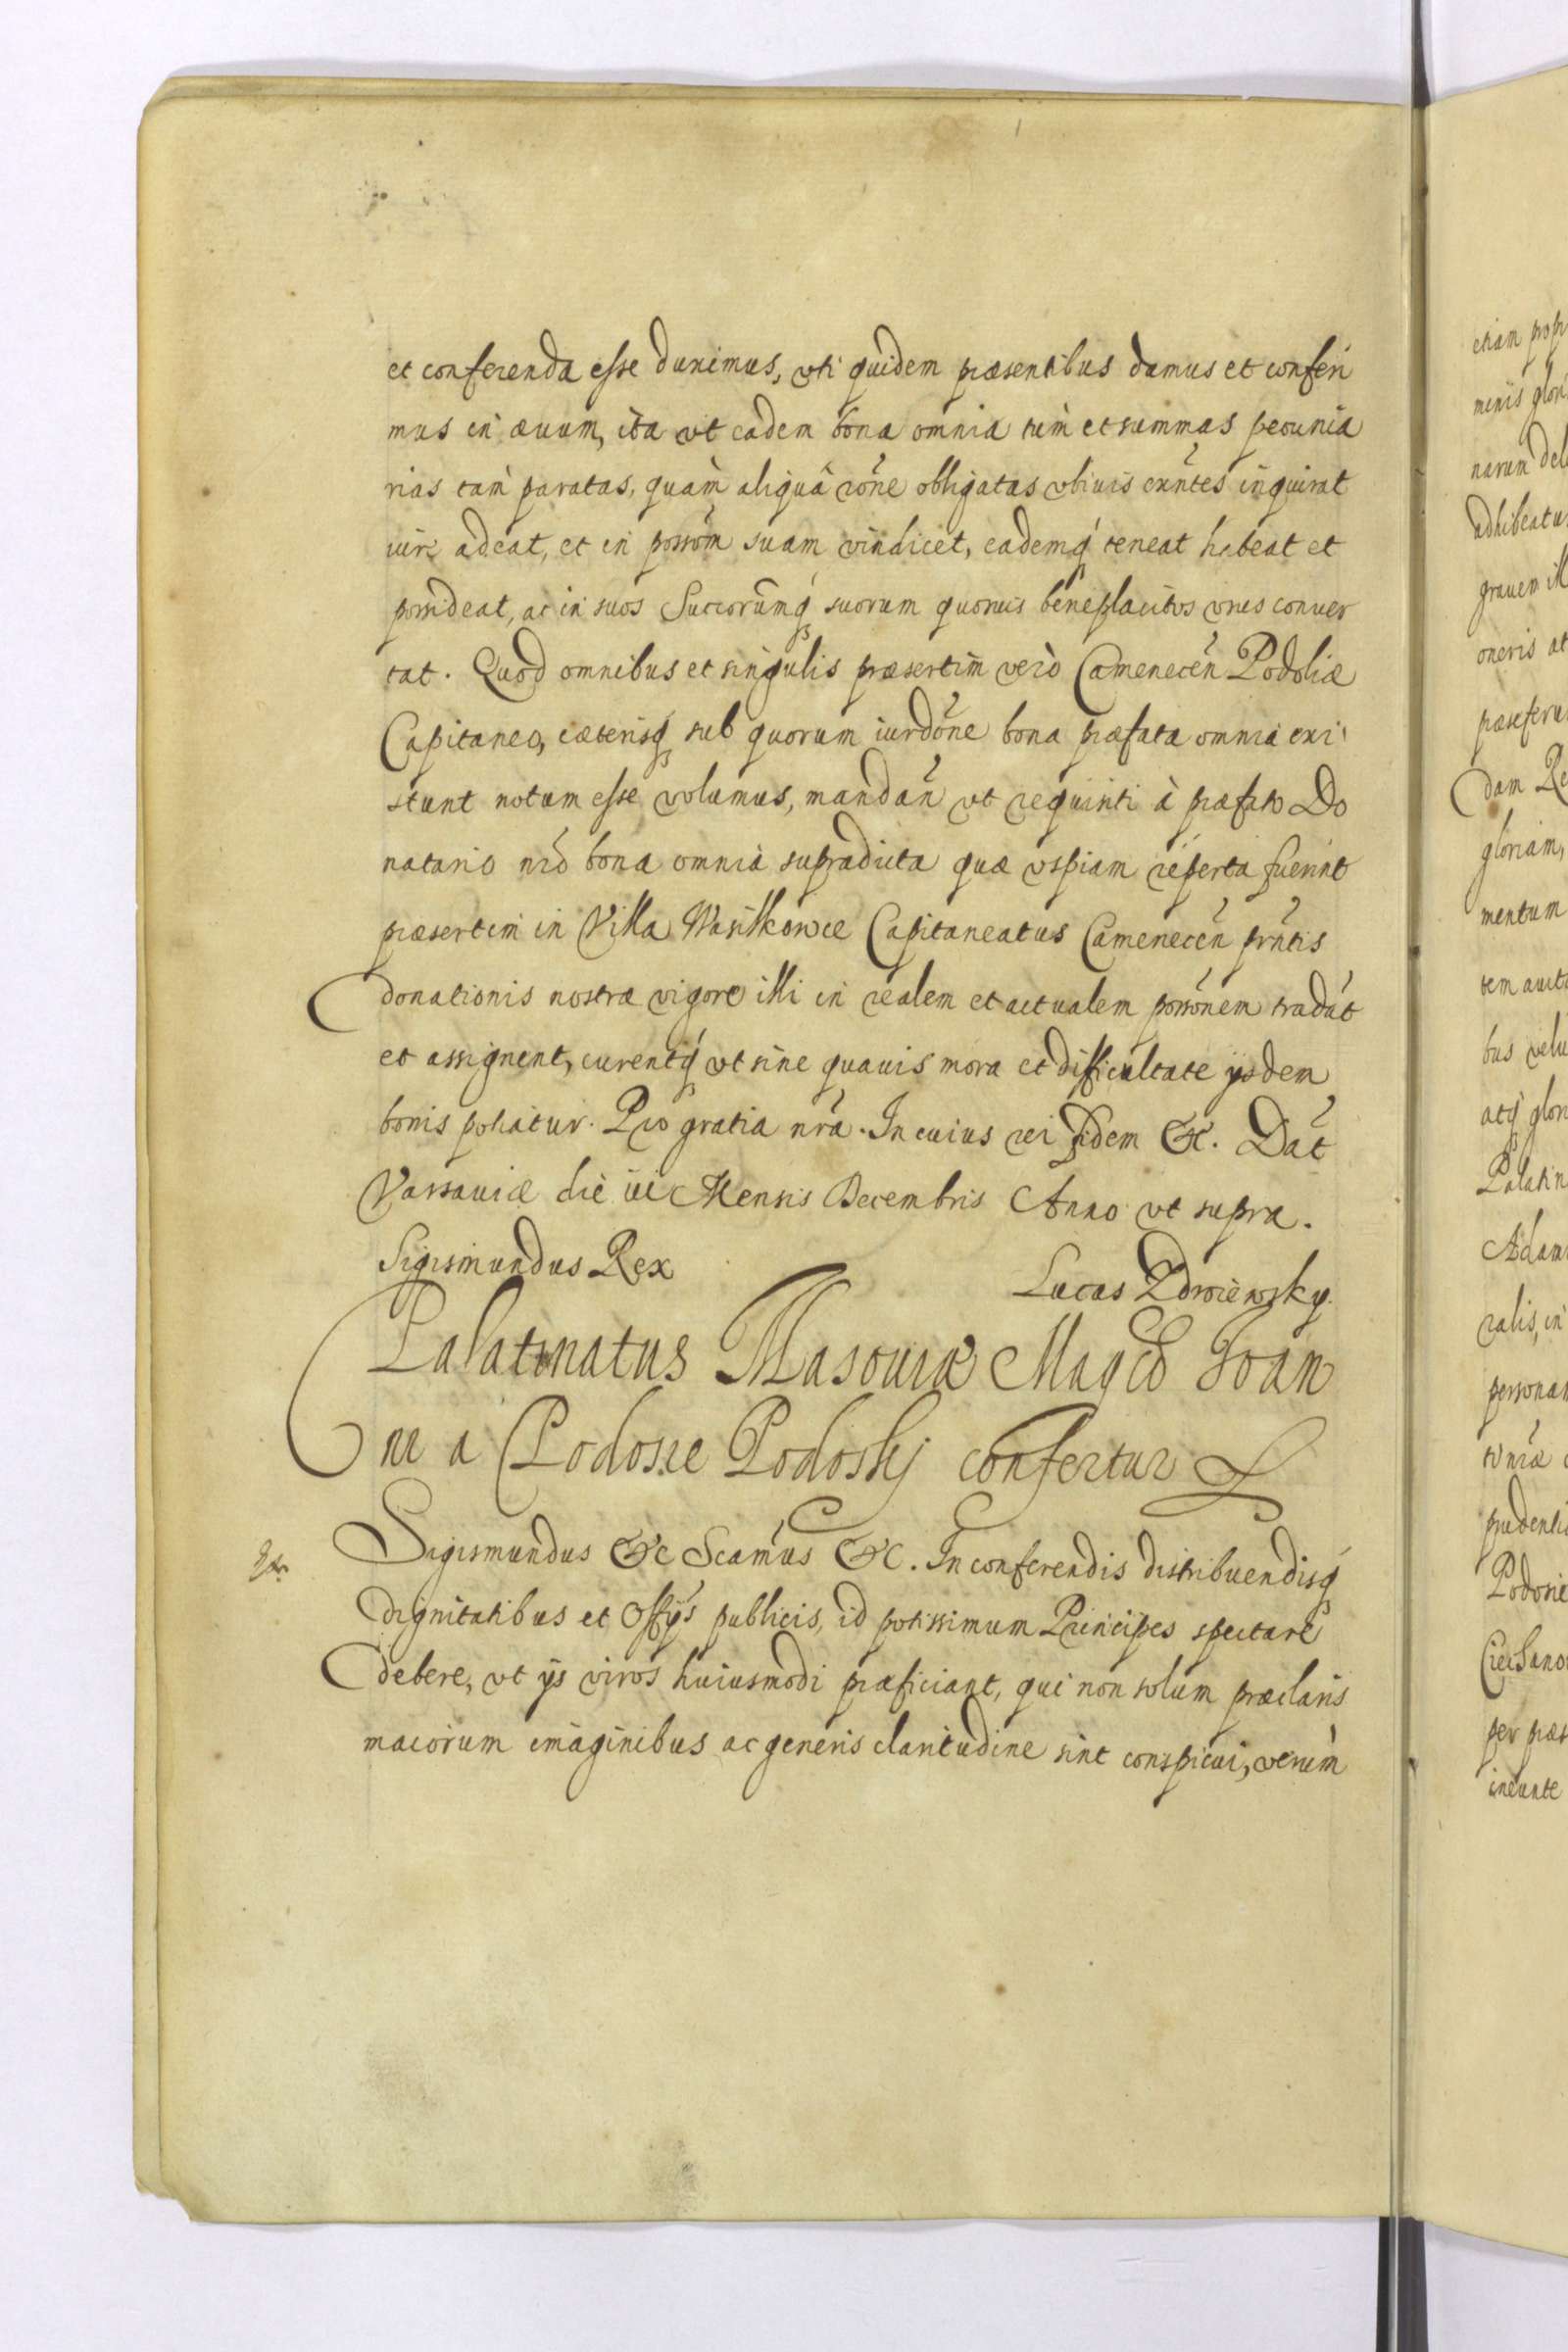 et conferenda esse duximus, vti quidem præsentibus damus et conferi
mus in æuum, ita vt eadem bona omnia tum et summas pecunia
rias tam paratas, quàm aliquâ rõne obligatas vbiuis exñtes inquirat
iure adeat, et in possõm suam vindicet, eademq́ teneat habeat et
possideat, ac in suos Succorũmq́ suorum quoruis beneplacitos vsus conuer
tat. Quod omnibus et singulis præsertim verò Camenecen̄ Podoliæ
Capitaneo, cæterisq́ sub quorum iurdõne bona præfata omnia exi
stunt notum esse volumus, mandan̄ vt requisiti à præfato Do
natario nr̃o bona omnia supradicta quæ vspiam reperta fuerint
præsertim in Villa Wasilkowce Capitaneatus Camenecen̄ prñtis
donationis nostræ vigore illi in realem et actualem possõnem tradãt
et assignent, curentq́ vt sine quauis mora et difficultate ijsdem
bonis potiatur. Pro gratia nr̃a. In cuius rei fidem &c. Dat̃
Varsauiæ die vi Mensis Decembris Anno vt supra.
Sigismundus Rex
Lucas Zdroiewsky.
Palatinatus Masouiæ Magco Ioan
ni a Podosie Podoskj confertur
Sigismundus &c Scam̃us &c. In conferendis distribuendisq́
dignitatibus et Offijs publicis, id potissimum Principes spectare
debere, vt ijs viros huiusmodi præficiant, qui non solum præclaris
maiorum imaginibus ac generis claritudine sint conspicui, verùm
etiam
narum
mentum
bus
Palatin
Podosie
ineunte